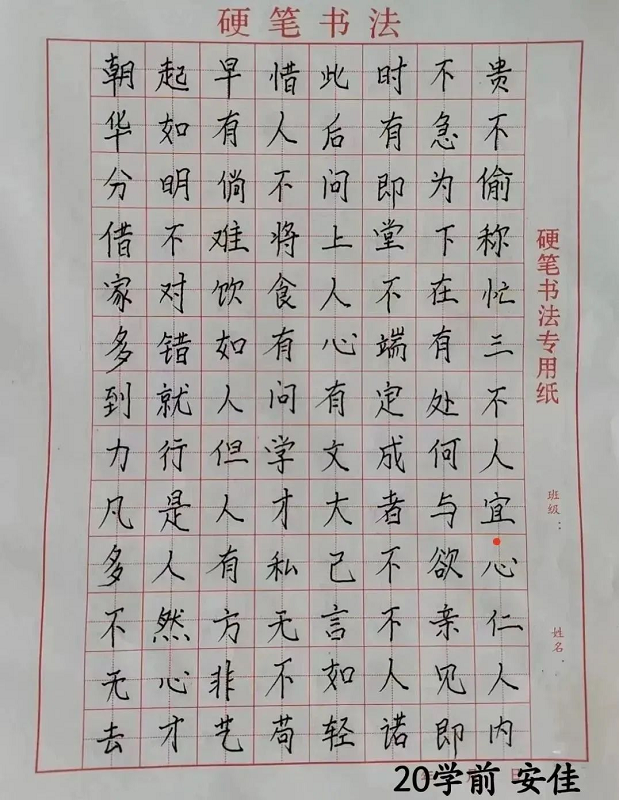 硬笔书法
朝起早惜此时不贵
华如有人后有急不
分明倘不问即为偷
借不难将上堂下称
家对饮食人不在忙
多错如有心端有三
到就人问有定处不
力行但学文成何人
凡是人才大者与宜
多人有私己不欲心
不然方无言不亲仁
无心非不如人见人
去才艺苟轻诺即内
硬笔书法专用纸
班级：
姓名：
20学前 安佳